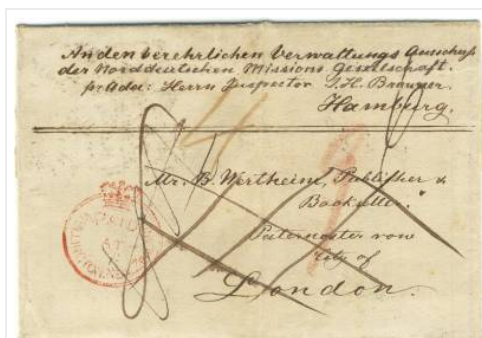 An den verehrlichen Verwaltungs Ausschuß
der Norddeutschen Missions Gesellschaft.
pr Ade: Herrn Inspector J. H. Brauer.
Hamburg.
Mr. B. Wertheim, Publisher &
Bookseller.
Paternoster row
City of
London.
PAID
AT